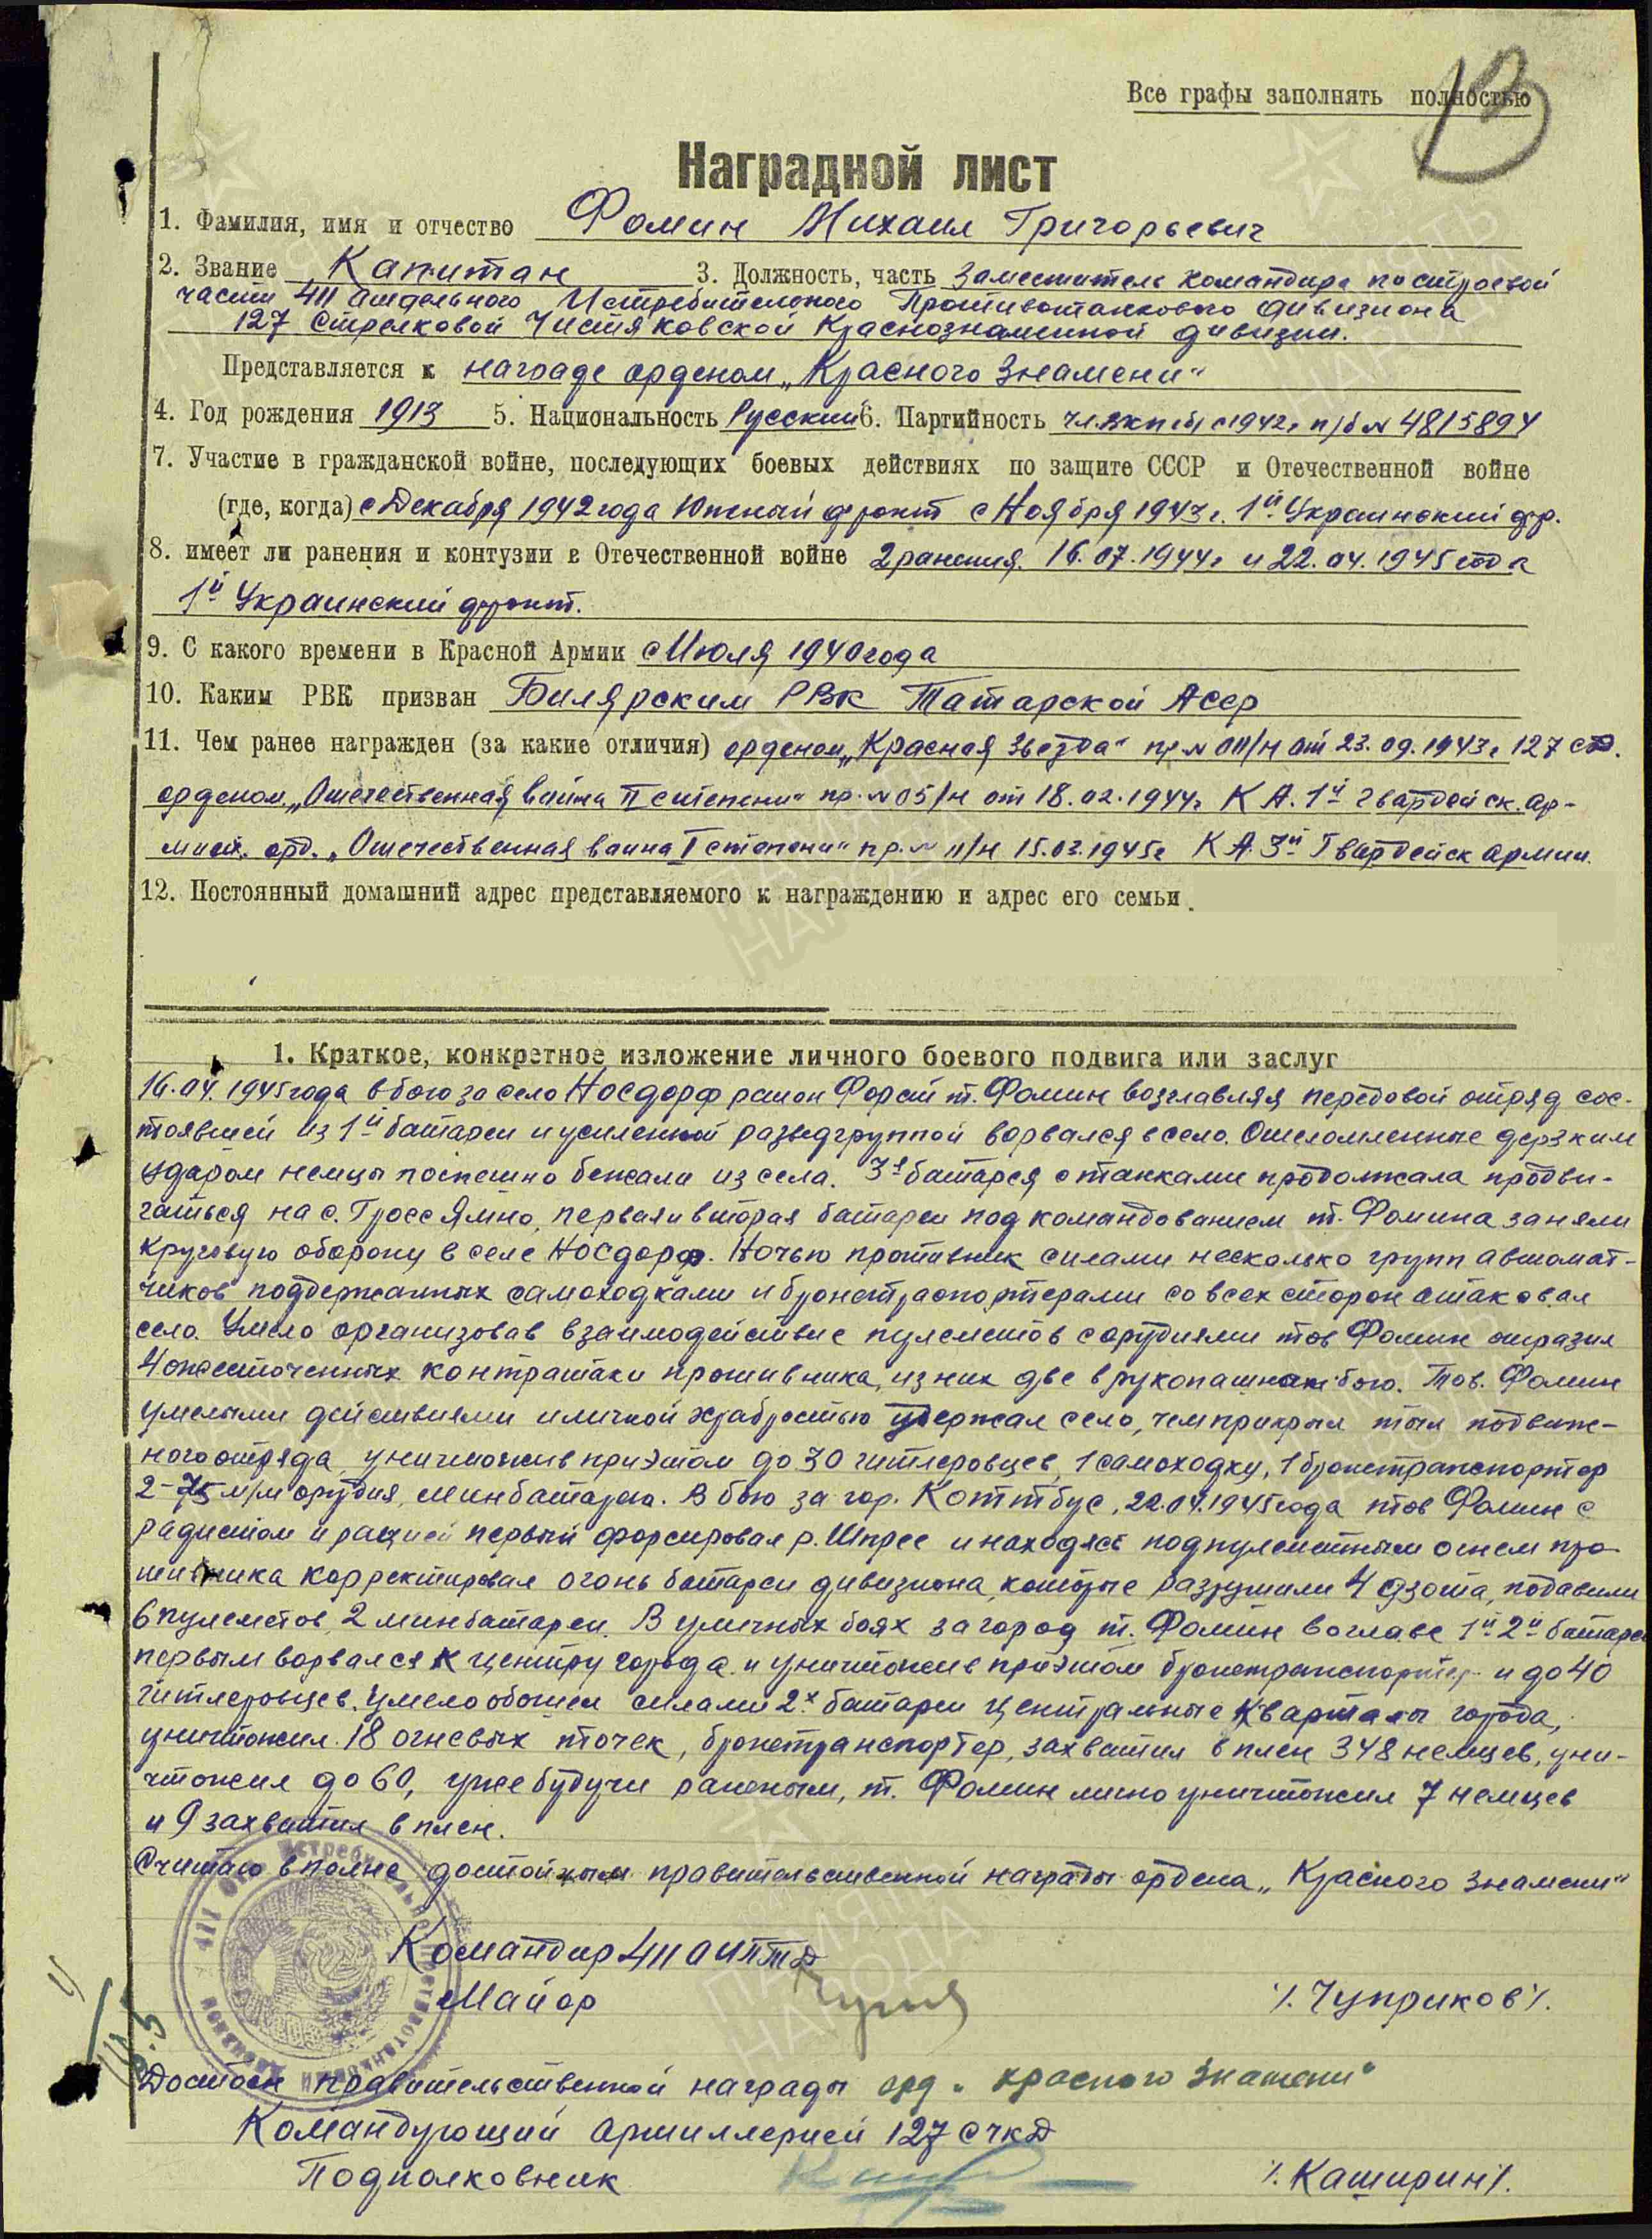 Все графы заполнять полностью
13
Наградной лист
1. Фамилия, имя и отчество Фомин Михаил Григорьевич
2. Звание Капитан 3. Должность, часть Заместитель командира по строевой
части 411 отдельного Истребительного Противотанкового дивизиона
127 Стрелковой Чистяковской Краснознаменной дивизии.
Представляется к награде орденом „Красного Знамени"
4. Год рождения 1913 5. Национальность Русский 6. Партийность чл.ВКП(б) с 1942г п/б № 4815894
7. Участие в гражданской войне, последующих боевых действиях по защите СССР и Отечественной войне
(где, когда) с Декабря 1942 года Южный фронт с Ноября 1943г. 1й Украинский фр.
8. имеет ли ранения и контузии в Отечественной войне 2 ранения. 16.07.1944г и 22.04.1945 года
1й Украинский фронт.
9. С какого времени в Красной Армии с Июля 1940 года
10. Каким РВК призван Билярским РВК Татарской Асср
11. Чем ранее награжден (за какие отличия) орденом „Красная Звезда" пр № 011/н от 23.09.1943г 127 сд.
орденом „Отечественная война II степени" пр. № 05/н от 18.02.1944г К А. 1й гвардейск. ар-
мией. орд. „Отечественная война I степени" пр. № 11/н 15.03.1945г К А. 3й Гвардейск армии.
12. Постоянный домашний адрес представляемого к награждению и адрес его семьи
1. Краткое, конкретное изложение личного боевого подвига или заслуг
16.04.1945 года в бою за село Носдорф район Форст т. Фомин возглавляя передовой отряд сос-
тоявшей из 1й батареи и усиленной разведгруппой ворвался в село. Ошеломленные дерзким
ударом немцы поспешно бежали из села. 3я батарея с танками продолжала продви-
гаться на с. Гросс Ямно, первая и вторая батареи под командованием т. Фомина заняли
круговую оборону в селе Носдорф. Ночью противник силами несколько групп автомат-
чиков поддержанных самоходками и бронетраспортерами со всех сторон атаковал
село. Умело организовав взаимодействие пулеметов с орудиями тов Фомин отразил
4 ожесточенных контратаки противника, из них две в рукопашном бою. Тов. Фомин
умелыми действиями и личной храбростью удержал село, чем прикрыл тыл подвиж-
ного отряда, уничтожив при этом до 30 гитлеровцев, 1 самоходку, 1 бронетранспортер
2-75 м/м орудия, минбатарею. В бою за гор. Коттбус, 22.04.1945 года тов Фомин с
радистом и рацией первый форсировал р. Шпрее и находясь под пулеметным огнем про-
тивника корректировал огонь батареи дивизиона, которые разрушили 4 дзота, подавили
6 пулеметов, 2 минбатареи. В уличных боях за город т. Фомин во главе 1й 2й батареи
первым ворвался к центру города и уничтожив при этом бронетранспортер и до 40
гитлеровцев. Умело обошел силами 2х батареи центральные кварталы города,
уничтожил 18 огневых точек, бронетранспортер, захватил в плен 348 немцев, уни-
чтожил до 60, уже будучи раненым, т. Фомин лично уничтожил 7 немцев
и 9 захватил в плен.
Считаю вполне достойным правительственной награды ордена „Красного Знамени"
Командир 411 ОИПТД
Майор /. Чуприков /.
Достоин правительственной награды орд „красного Знамени"
Командующий артиллерией 127 СЧКД
Подполковник /. Каширин /.